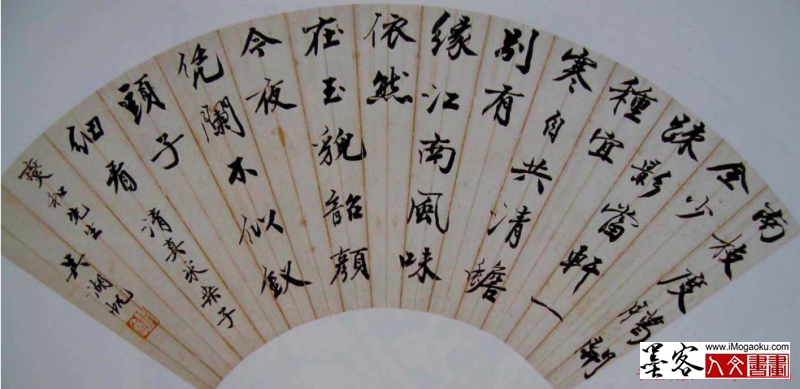 南枝度臈開
全少
疎影當軒一
種宜
寒自共清蟾
別有
緣江南風味
依然
在玉貌韶顏
今夜
凭闌不似釵
頭子
細看 清真采桑子
燮和先生 吳湖帆
墨客
www.iMogaoku.com
人文書畫